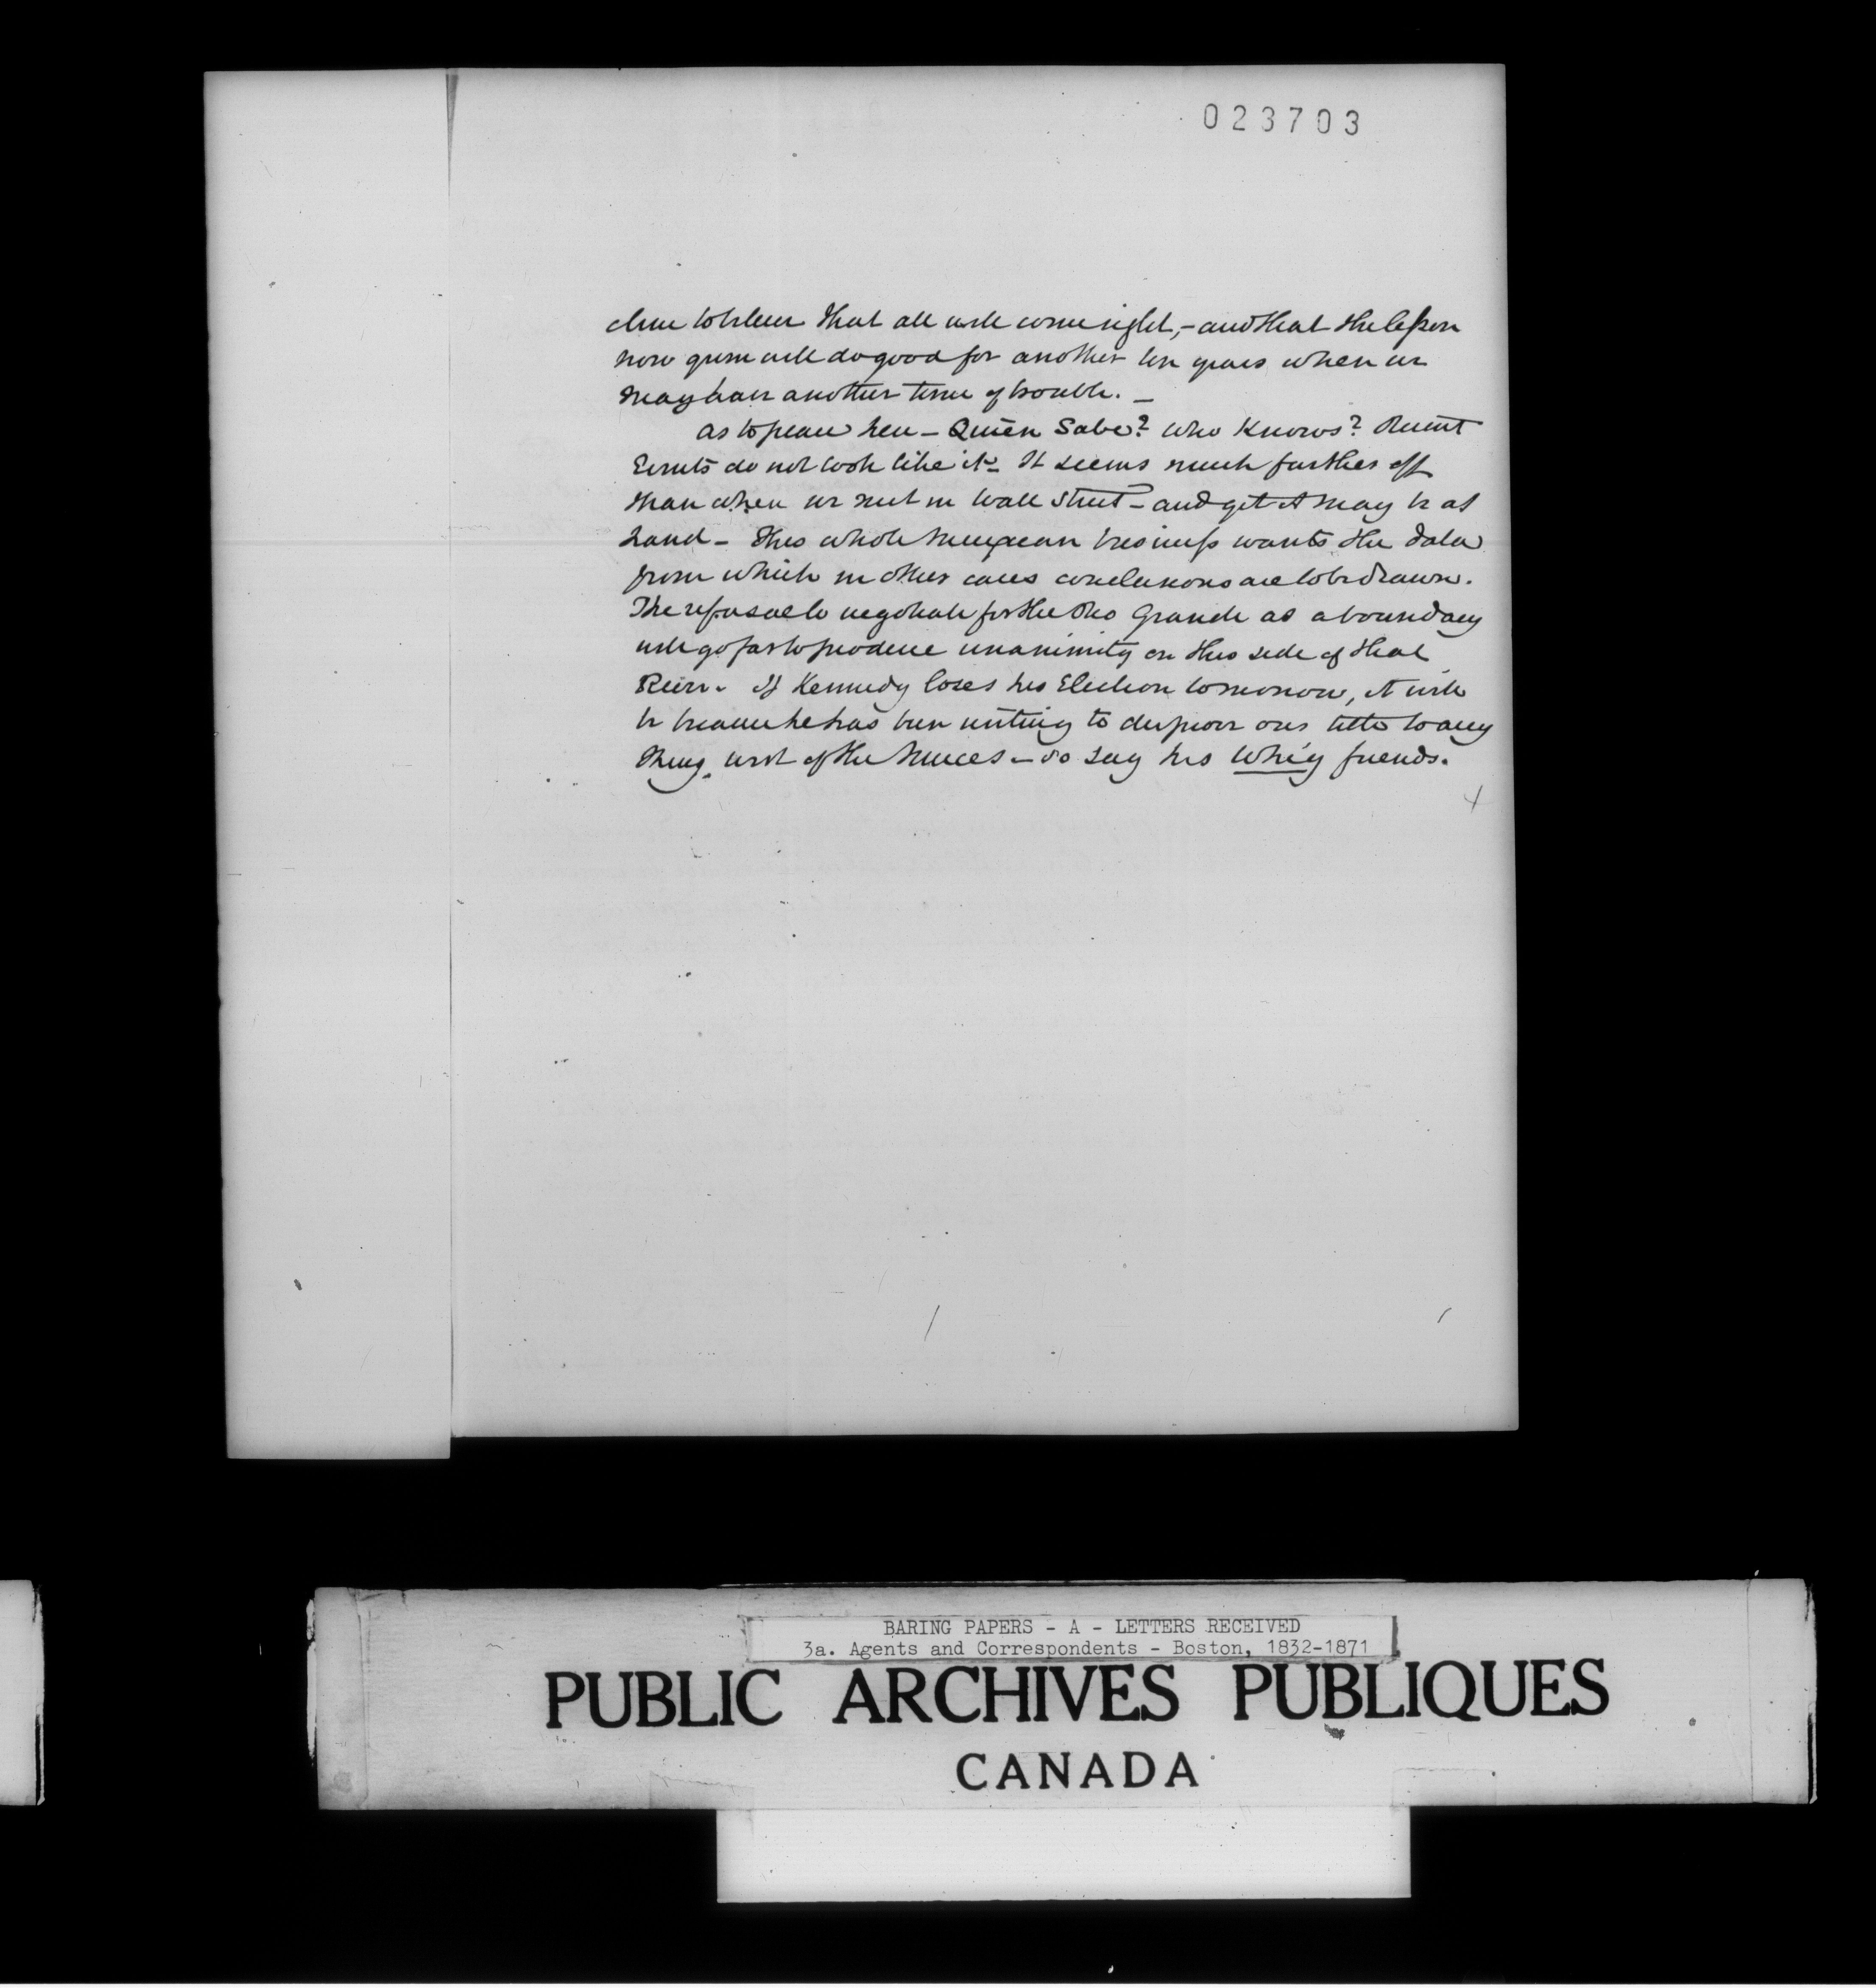 023703
clime to believe that all will come right,- and that the lesson
now given will do good for another ten years when we
may have another time of trouble. -
As to peace here - Quien Sabe? who Knows? Recent
Events do not look like it - It seems much further off
than when we met in Wall Street - and yet it may be at
hand - This whole Mexican business wants the data
from which in other cases conclusions are to be drawn.
The refusal to negotiate for the Rio Grande as a boundary
will go far to produce unanimity on this side of that
River. If Kennedy loses his Election tomorrow, it will
be because he has been writing to disprove our title to any
thing west of the Nueces - so say his Whig friends.
BARING PAPERS - A - LETTERS RECEIVED
3a. Agents and Correspondents - Boston, 1832-1871
PUBLIC ARCHIVES PUBLIQUES
CANADA